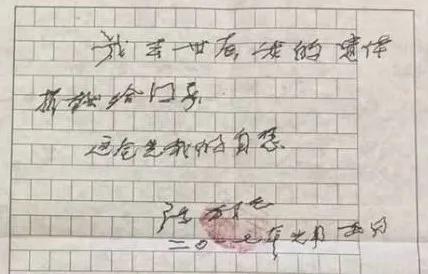 我去世后我的遗体
捐献给国家
这全是我的自愿
二〇一七年